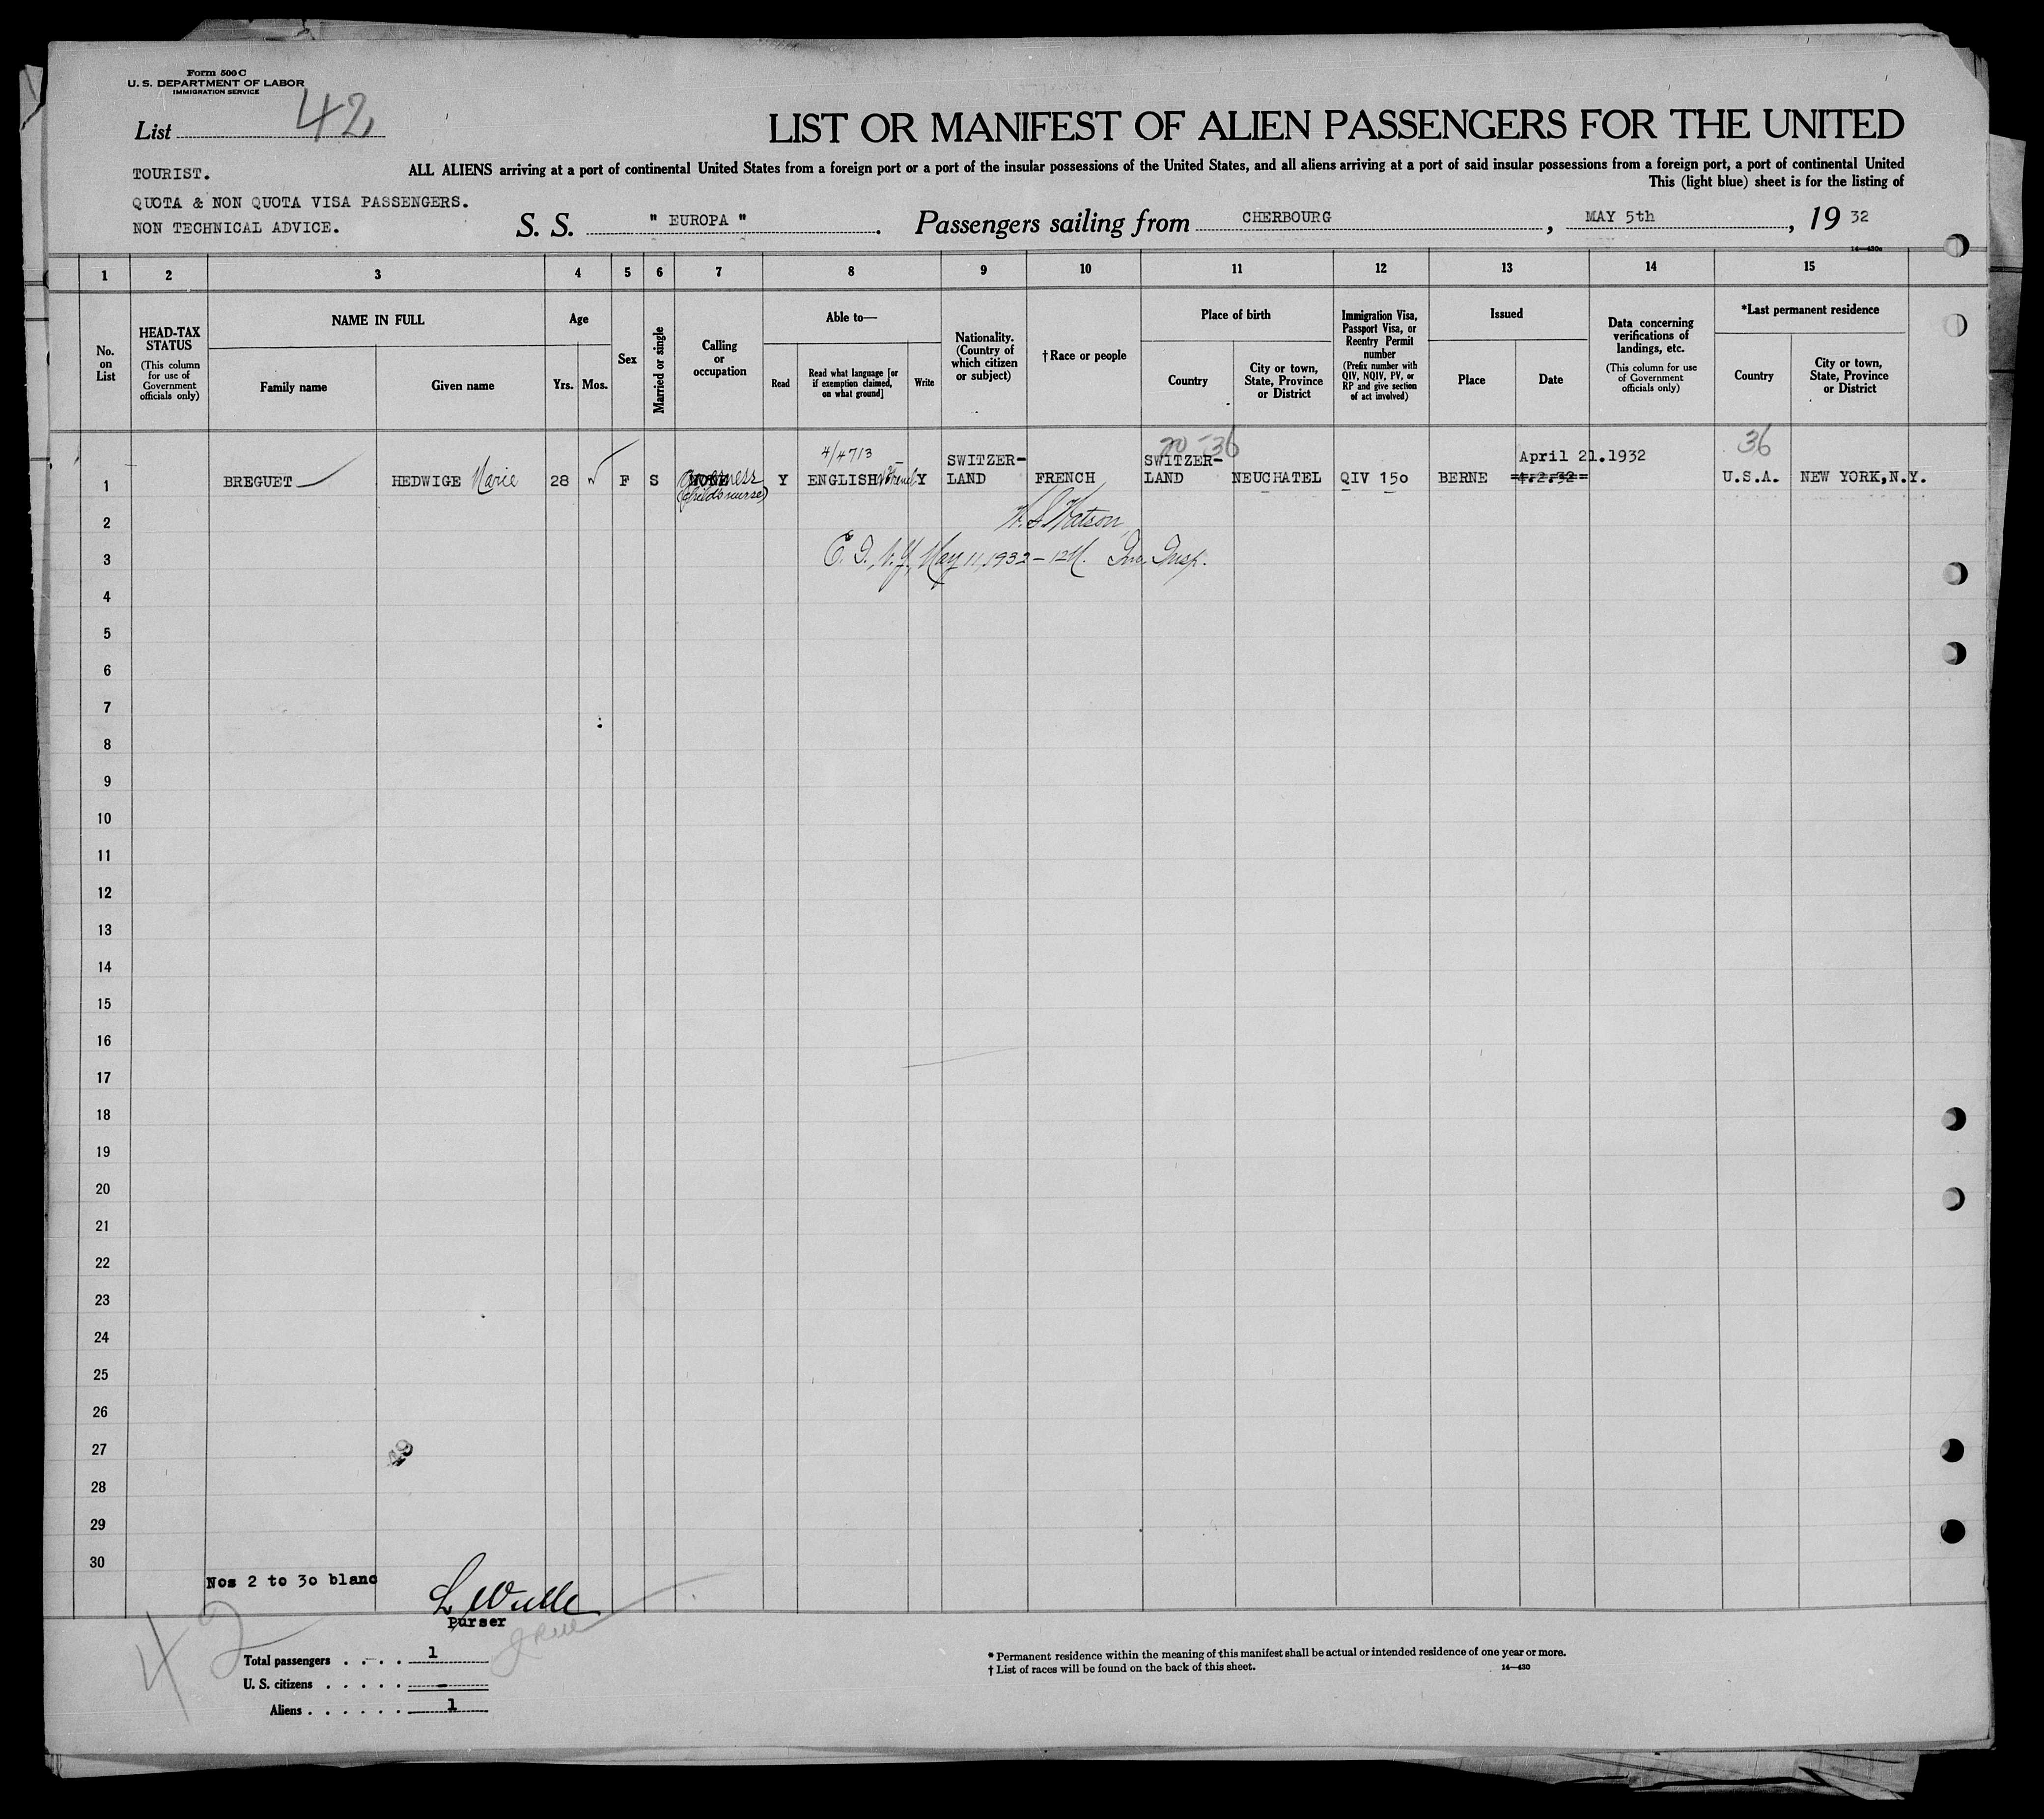 Form 500 C
U. S. DEPARTMENT OF LABOR
IMMIGRATION SERVICE
List 42
LIST OR MANIFEST OF ALIEN PASSENGERS FOR THE UNITED
ALL ALIENS arriving at a port of continental United States from a foreign port or a port of the insular possessions of the United States, and all aliens arriving at a port of said insular possessions from a foreign port, a port of continental United
This (light blue) sheet is for the listing of
TOURIST.
QUOTA & NON QUOTA VISA PASSENGERS.
NON TECHNICAL ADVICE.
S. S. " EUROPA ". Passengers sailing from CHERBOURG, MAY 5th, 19 32
14—430a
1 2 3 4 5 6 7 8 9 10 11 12 13 14 15
No. on List
HEAD-TAX STATUS
(This column for use of Government officials only)
NAME IN FULL
Family name
Given name
Age
Yrs. Mos.
Sex
Married or single
Calling or occupation
Able to—
Read
Read what language [or if exemption claimed, on what ground]
Write
Nationality. (Country of which citizen or subject)
†Race or people
Place of birth
Country
City or town, State, Province or District
Immigration Visa, Passport Visa, or Reentry Permit number
(Prefix number with QIV, NQIV, PV, or RP and give section of act involved)
Issued
Place
Date
Data concerning verifications of landings, etc.
(This column for use of Government officials only)
*Last permanent residence
Country
City or town, State, Province or District
4/4713
20 - 36
36
SWITZER- SWITZER- April 21.1932
1 BREGUET HEDWIGE Marie 28 F S Y ENGLISH Y LAND FRENCH LAND NEUCHATEL QIV 150 BERNE 4.2.32 U.S.A. NEW YORK,N.Y.
(Childs nurse)
2 Watson
3 E. I., N.Y., May 11, 1932 — Imm. Insp.
4
5
6
7
8
9
10
11
12
13
14
15
16
17
18
19
20
21
22
23
24
25
26
27
28
29
30
Nos 2 to 30 blanc
Purser
42
Total passengers . . . . 1
U. S. citizens . . . . . -
Aliens . . . . . . 1
* Permanent residence within the meaning of this manifest shall be actual or intended residence of one year or more.
† List of races will be found on the back of this sheet.
14—430